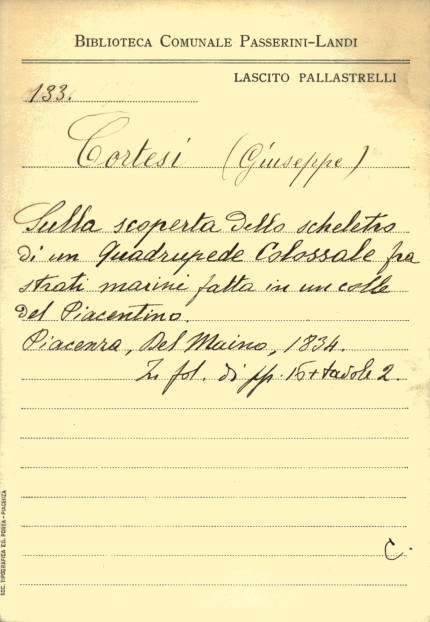 BIBLIOTECA COMUNALE PASSERINI-LANDI
LASCITO PALLASTRELLI
133.
Cortesi (Giuseppe)
Sulla scoperta dello scheletro
di un Quadrupede Colossale fra
strati marini fatta in un colle
del Piacentino.
Piacenza, Del Maino, 1834.
In fol. di pp. 15 + tavole 2.
C.
SOC. TIPOGRAFICA ED. PORTA - PIACENZA